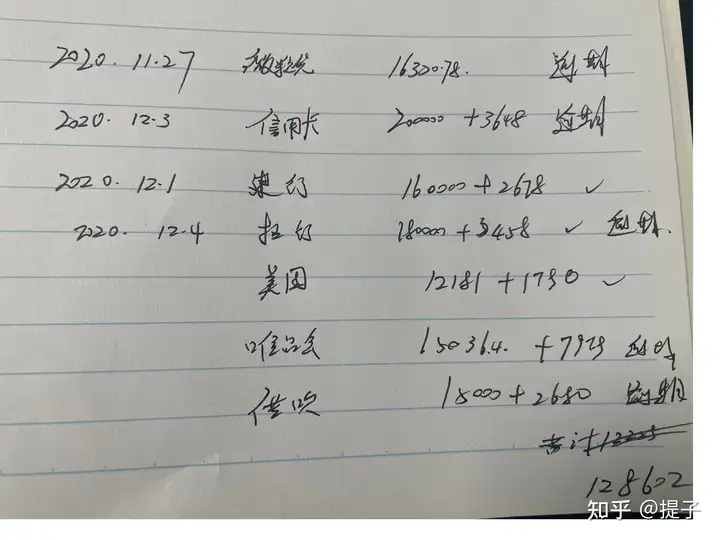 2020. 11.27 微粒贷 16320.78. 逾期
2020. 12.3 信用卡 200000 +3648 逾期
2020. 12.1 建行 160000 + 2678 ✓
2020. 12.4 招行 180000 + 3458 ✓ 逾期.
美团 12181 +1790 ✓
唯品会 15036.4. +7979 逾期
借呗 18000 + 2680 逾期
共计
128602
知乎 @提子